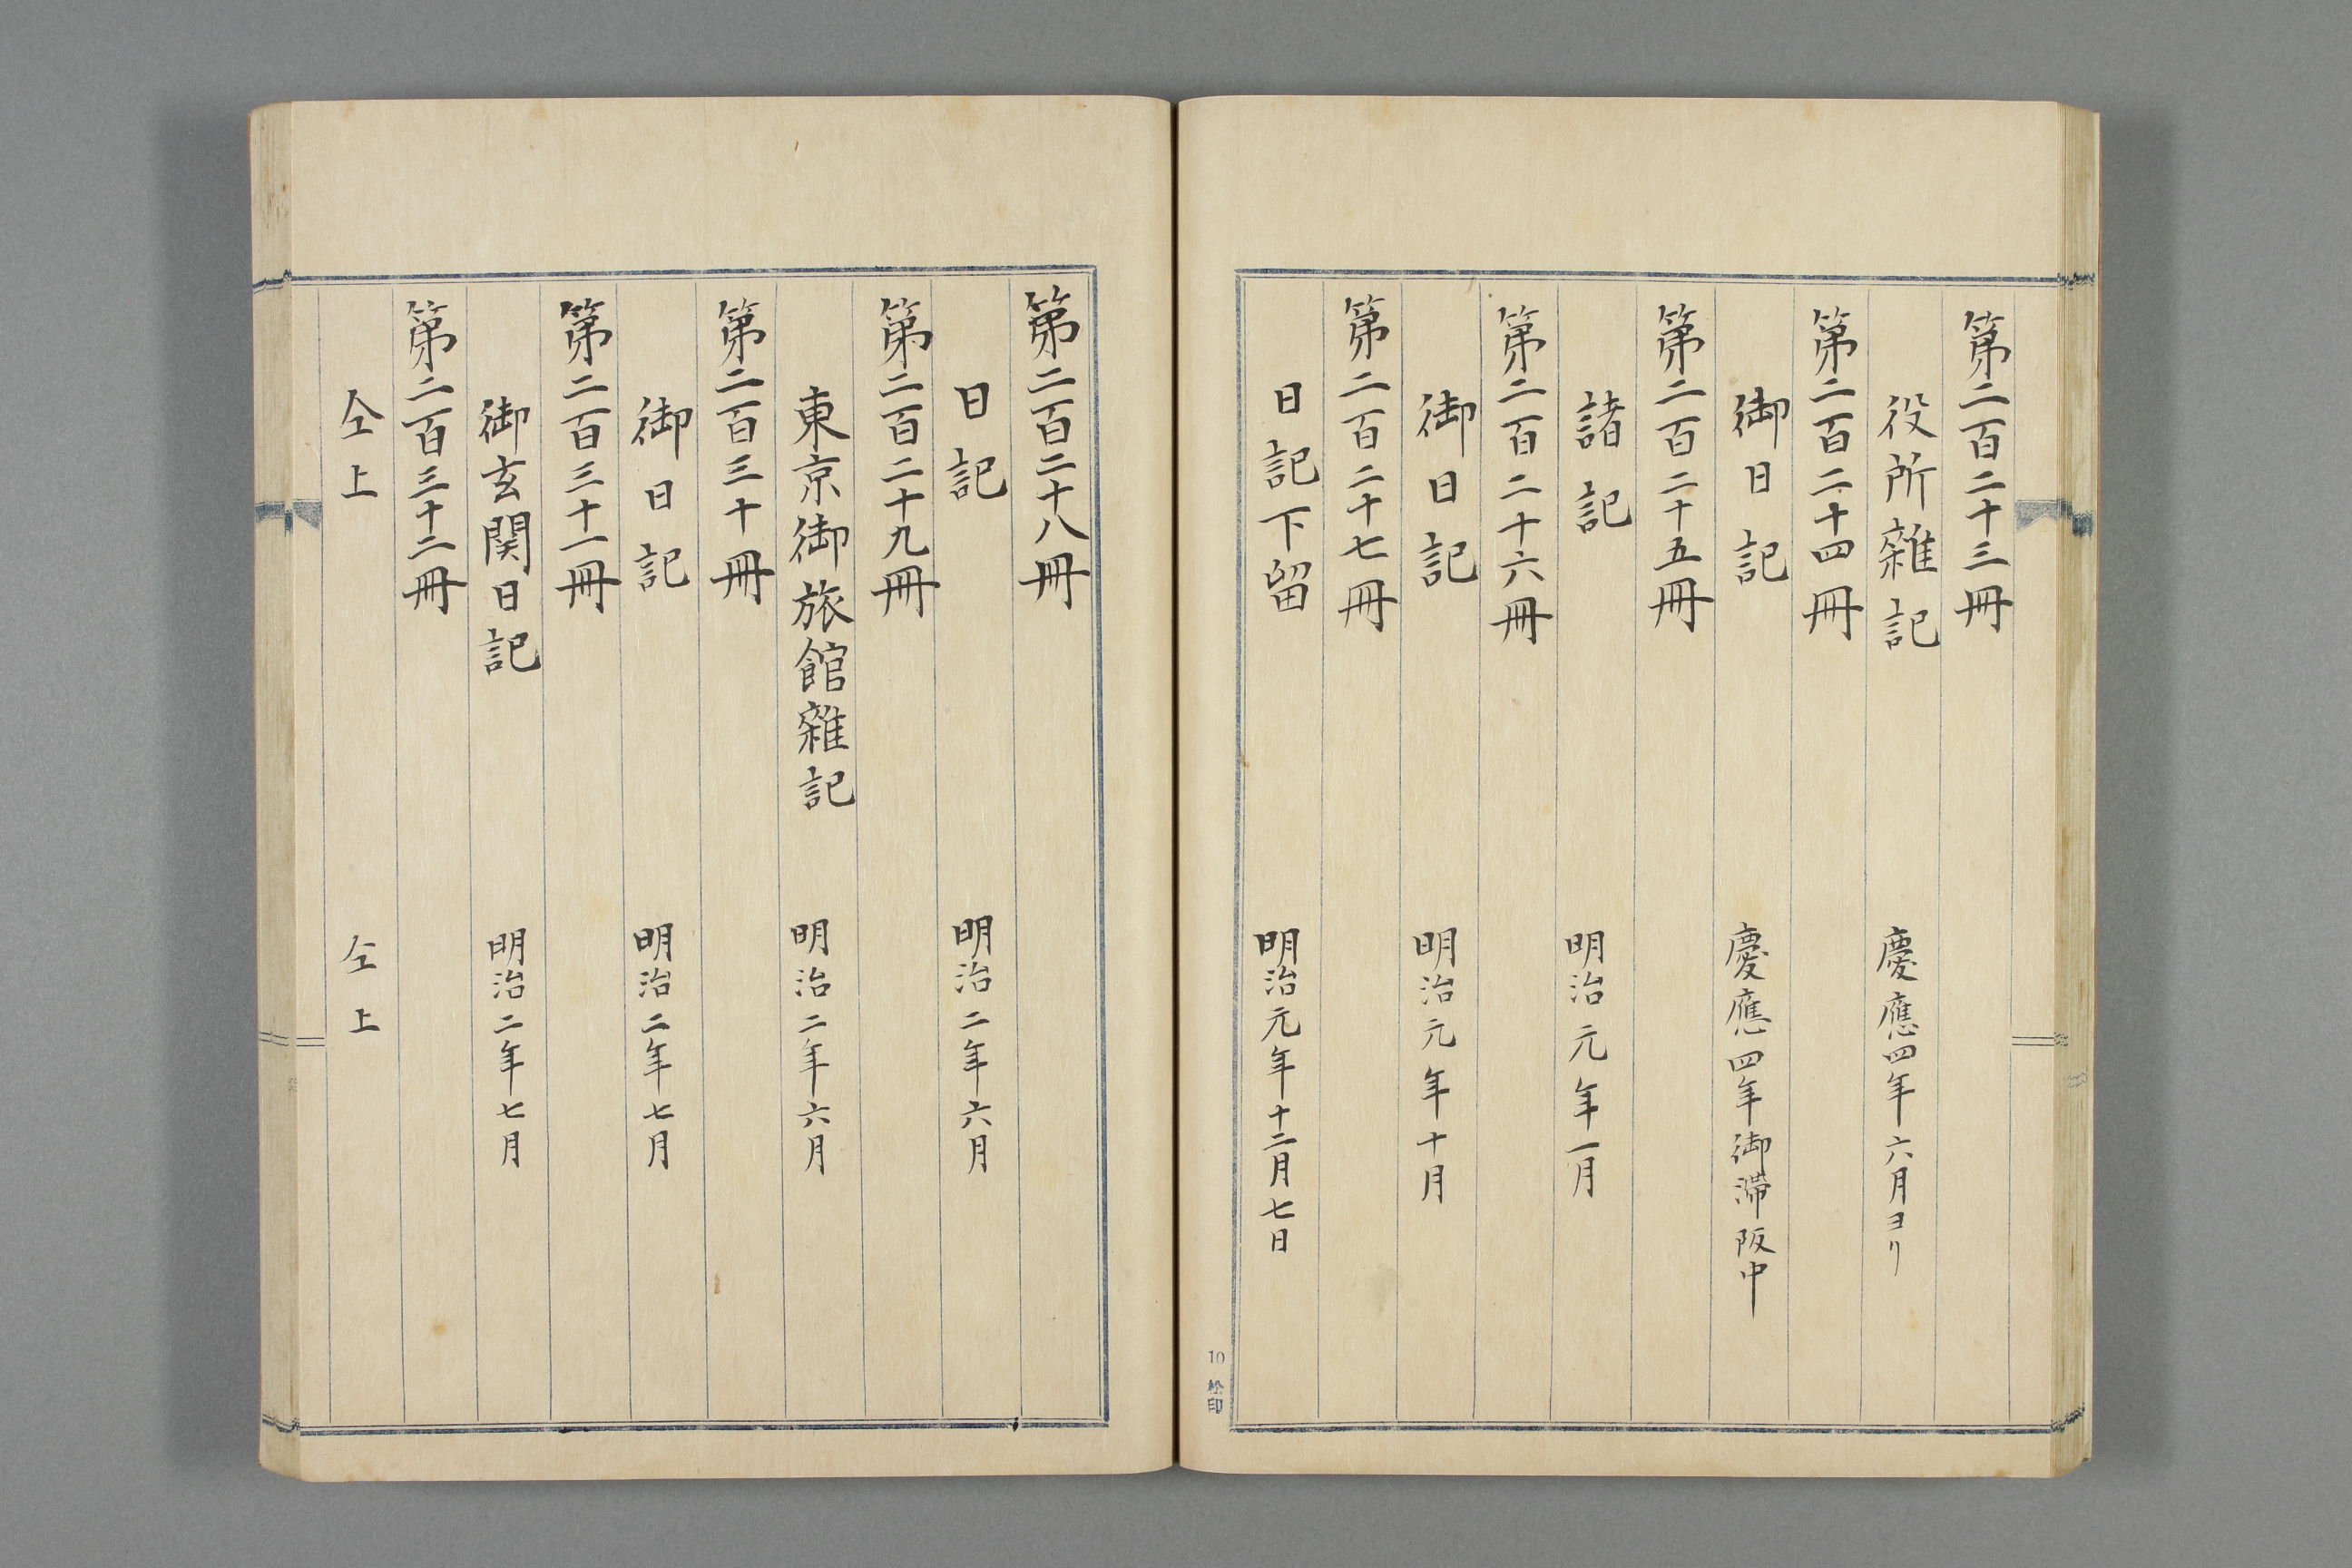 第二百二十三冊
役所雑記 慶應四年六月ヨリ
第二百二十四冊
御日記 慶應四年御滞阪中
第二百二十五冊
諸記 明治元年一月
第二百二十六冊
御日記 明治元年十月
第二百二十七冊
日記下留 明治元年十二月七日
10 松印
第二百二十八冊
日記 明治二年六月
第二百二十九冊
東京御旅館雜記 明治二年六月
第二百三十冊
御日記 明治二年七月
第二百三十一冊
御玄関日記 明治二年七月
第二百三十二冊
仝上 仝上